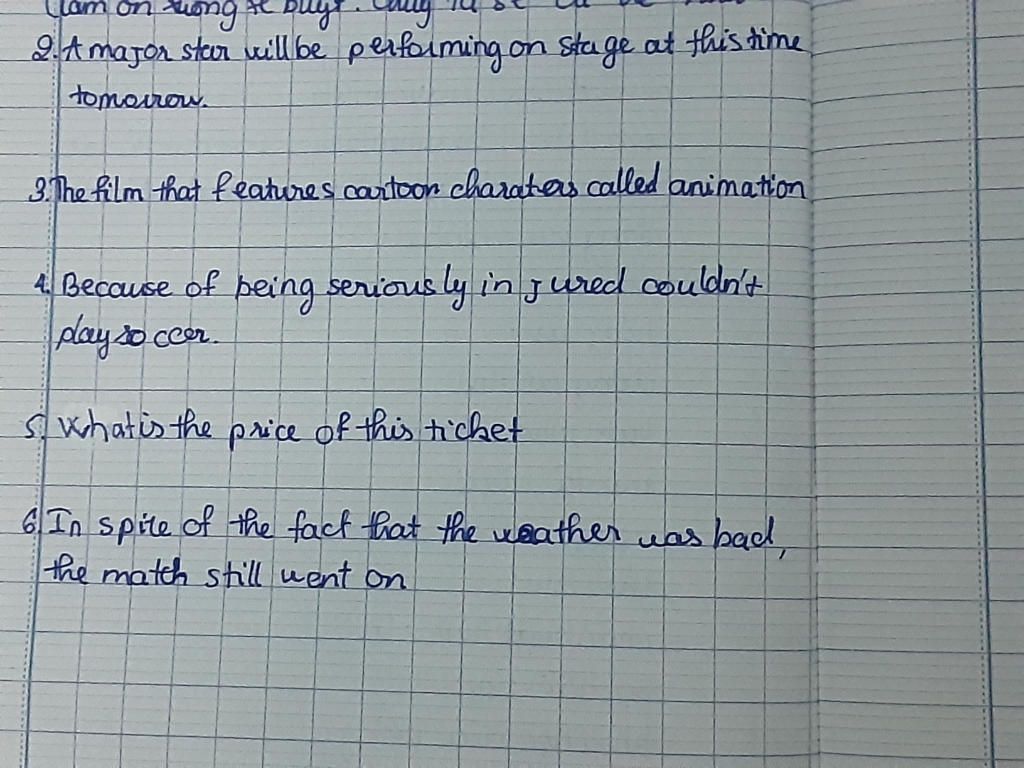 2. A major star will be performing on stage at this time
tomorrow.
3. The film that features cartoon charaters called animation
4. Because of being seriously injured couldn't
play soccer.
5. What is the price of this ticket
6. In spite of the fact that the weather was bad,
the match still went on